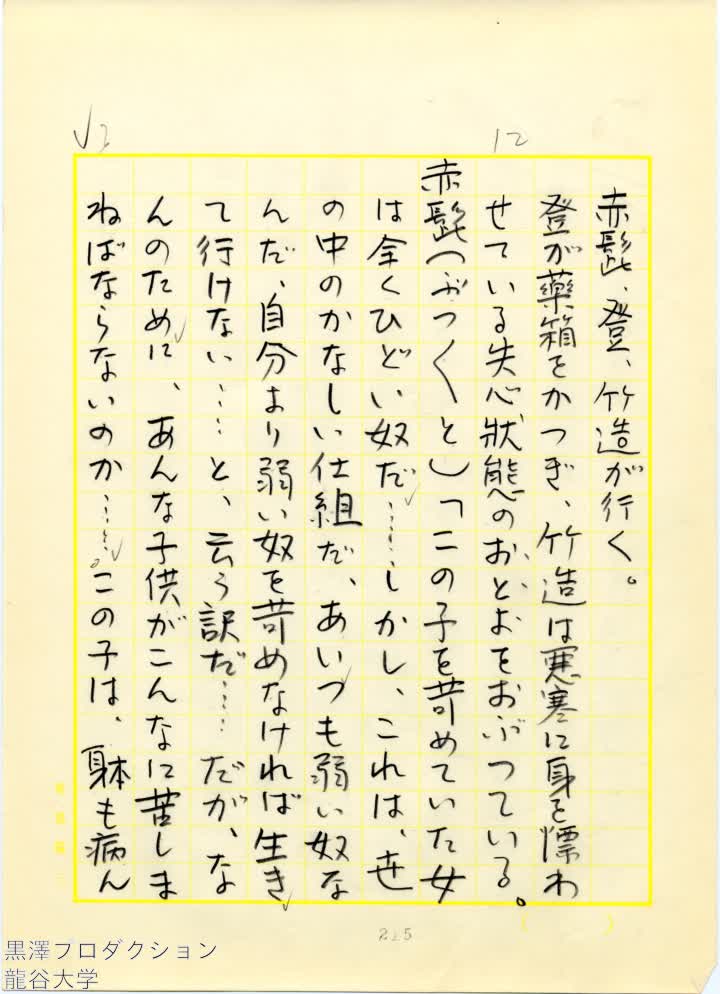 12
√3
赤髭、登、竹造が行く。
登が藥箱をかつぎ、竹造は悪寒に身を慄わ
せている失心狀態のおとよをおぶつている。
赤髭(ぶつ〱と)「この子を苛めていた女
は全くひどい奴だ……しかし、これは、世
の中のかなしい仕組だ、あいつも弱い奴な
んだ、自分より弱い奴を苛めなければ生き
て行けない……と、云う訳だ……だが、な
んのために、あんな子供がこんなに苦しま
ねばならないのか……。この子は、身体も病ん
225
黒澤プロダクション
龍谷大学